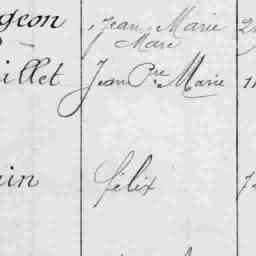 geon Jean Marie
Marc
illet Jean Pre Marie 11
in félix